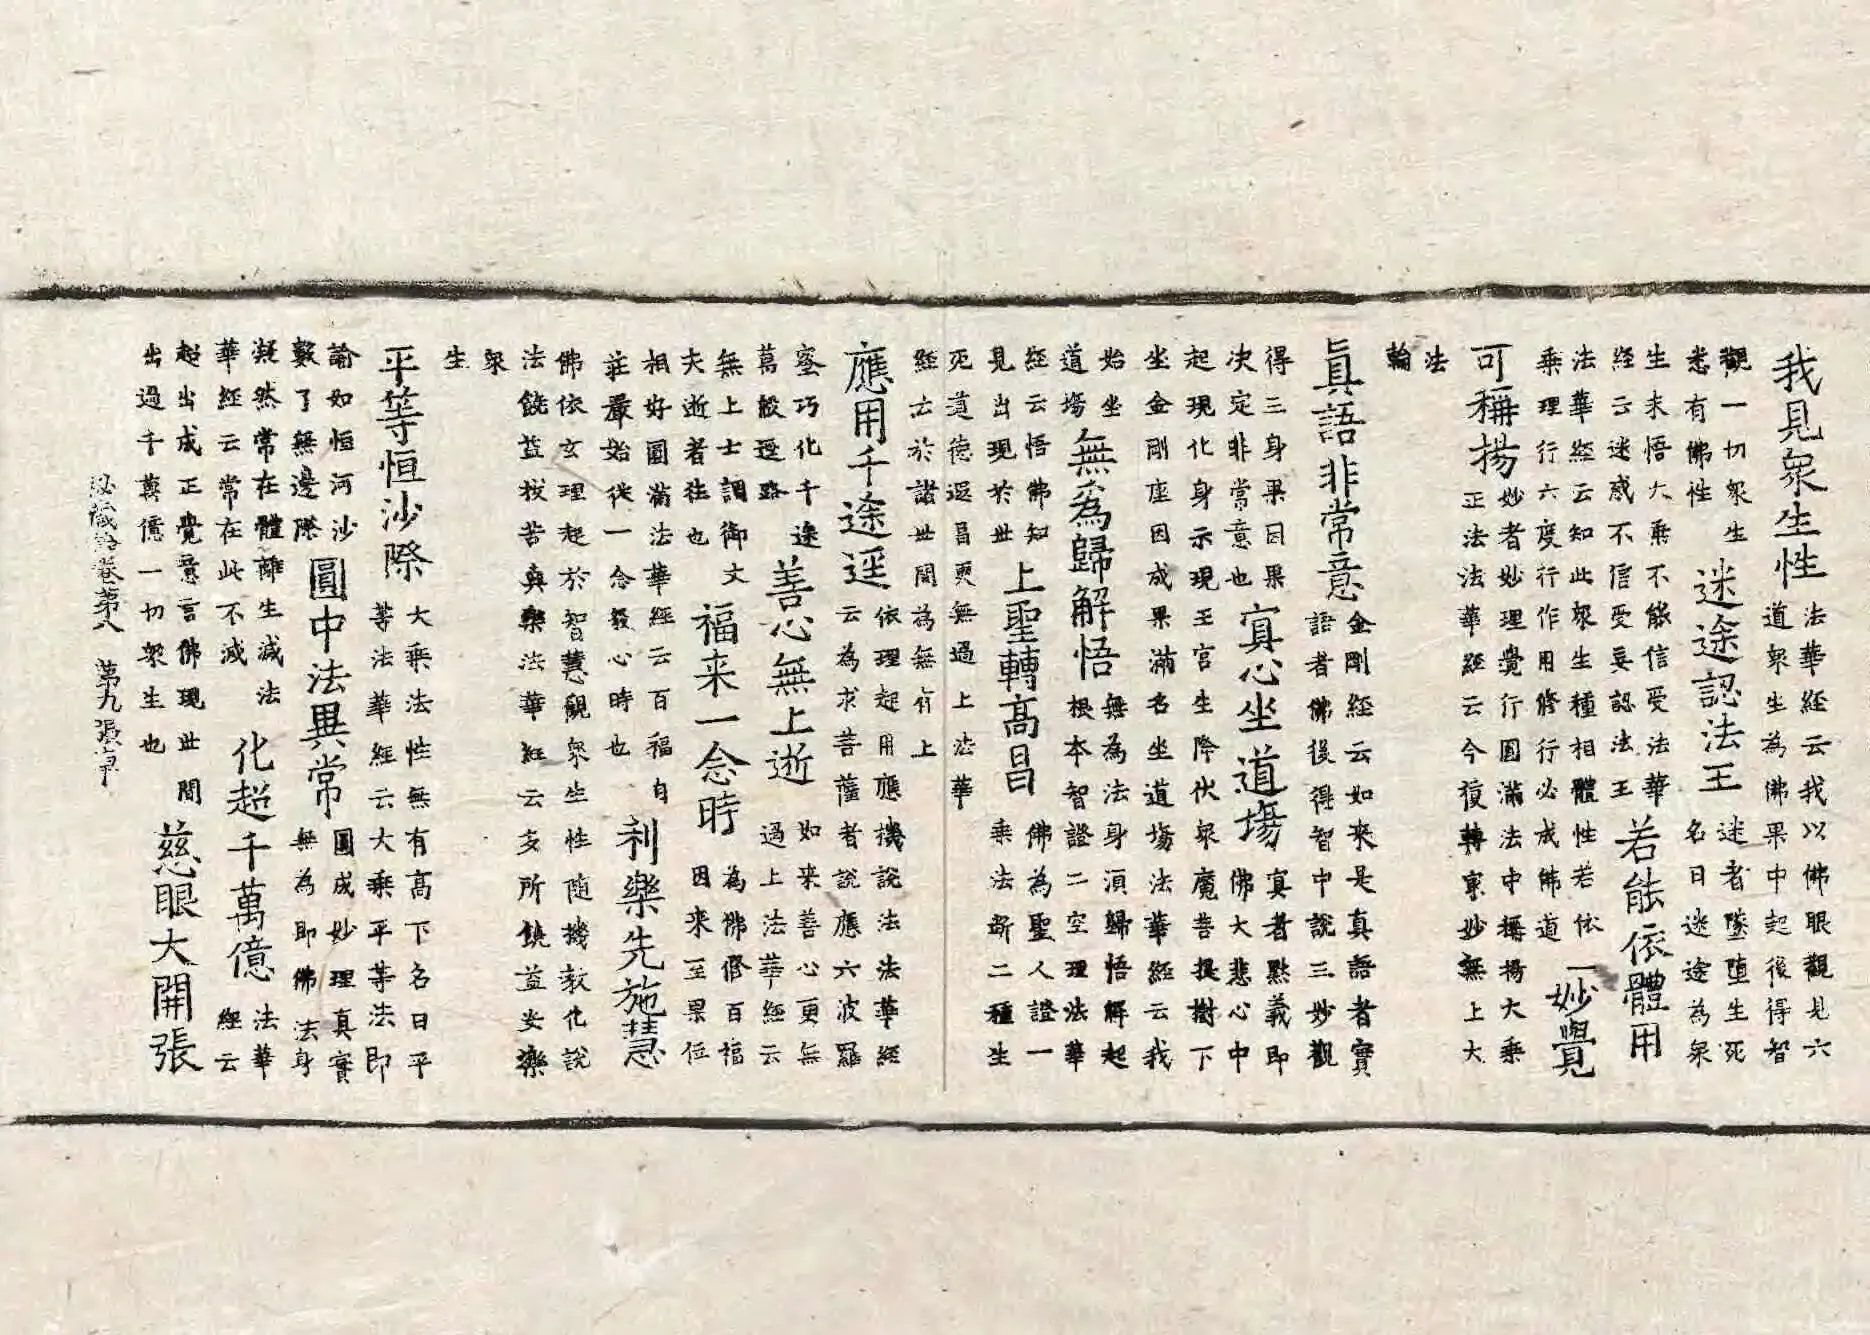 我見衆生性
法華経云我以佛眼觀見六
道衆生為佛果中起後得智
觀一切衆生
悉有佛性
迷途認法王
迷者墜墮生死
名曰迷途為衆
生未悟大乗不能信受法華
経云迷惑不信受妄認法王
若能依體用
法華経云知此衆生種相體性若依
乗理行六度行作用修行必成佛道
一妙覺
可稱揚
妙者妙理覺行圓滿法中稱揚大乗
正法法華経云今復轉寂妙無上大
法
輪
眞語非常意
金剛経云如來是真語者實
語者佛後得智中說三妙觀
得三身果因果
决定非常意也
寘心坐道場
寘者黙義即
佛大悲心中
起現化身示現王宮生降伏衆魔菩提樹下
坐金剛座因成果滿名坐道場法華経云我
始坐
道場
無為歸解悟
無為法身湏歸悟解起
根本智證二空理法華
経云悟佛知
見出現於世
上聖轉高昌
佛為聖人證一
乗法斷二種生
死道德還昌更無過上法華
経云於諸世間為無有上
應用千途逕
依理起用應機說法法華経
云為求菩薩者說應六波羅
蜜巧化千途
萬般逕路
善心無上逝
如来善心更無
過上法華経云
無上士調御丈
夫逝者往也
福来一念時
為佛脩百福
因来至果位
相好圓滿法華経云百福自
荘嚴始従一念發心時也
利樂先施慧
佛依玄理起於智慧觀衆生性隨機教化說
法饒益拔苦與樂法華経云多所饒益安樂
衆
生
平等恒沙際
大乗法性無有高下名曰平
等法華経云大乗平等法即
諭如恒河沙
數了無邊際
圓中法異常
圓成妙理真實
無為即佛法身
凝然常在體離生滅法
華経云常在此不滅
化超千萬億
法華
経云
起出成正覺意言佛現世間
出過千萬億一切衆生也
慈眼大開張
秘蔵詮卷第八 第九張 卓